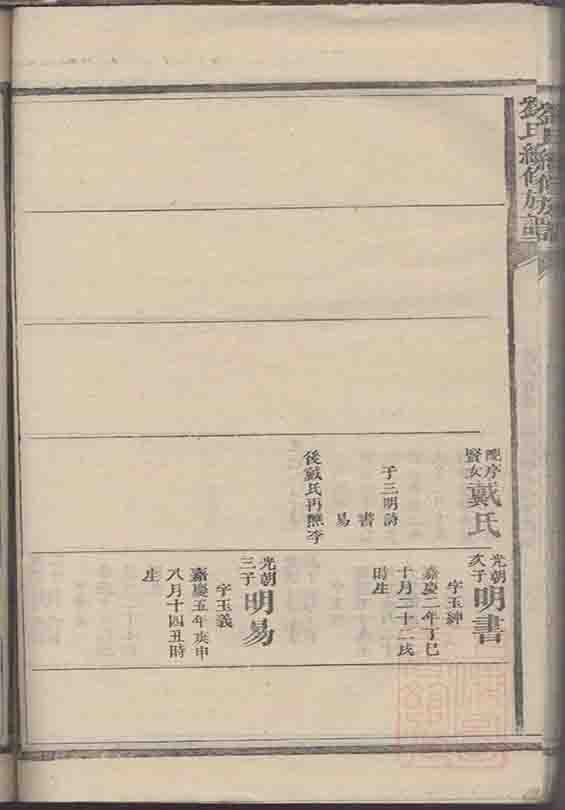 劉氏續修族譜
配序
賢女
戴氏
子三明詩
書
易
後戴氏再醮李
光朝
次子
明書
字玉紳
嘉慶二年丁巳
十月二十二戌
時生
光朝
三子
明易
字玉義
嘉慶五年庚申
八月十四丑時
生